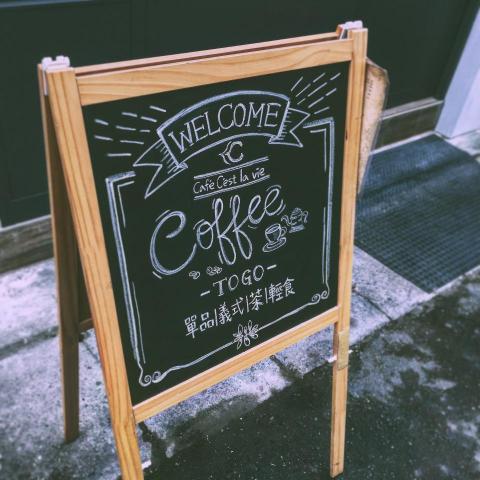 WELCOME
C
Café C'est la vie
Coffee
-TOGO-
單品|義式|茶|輕食